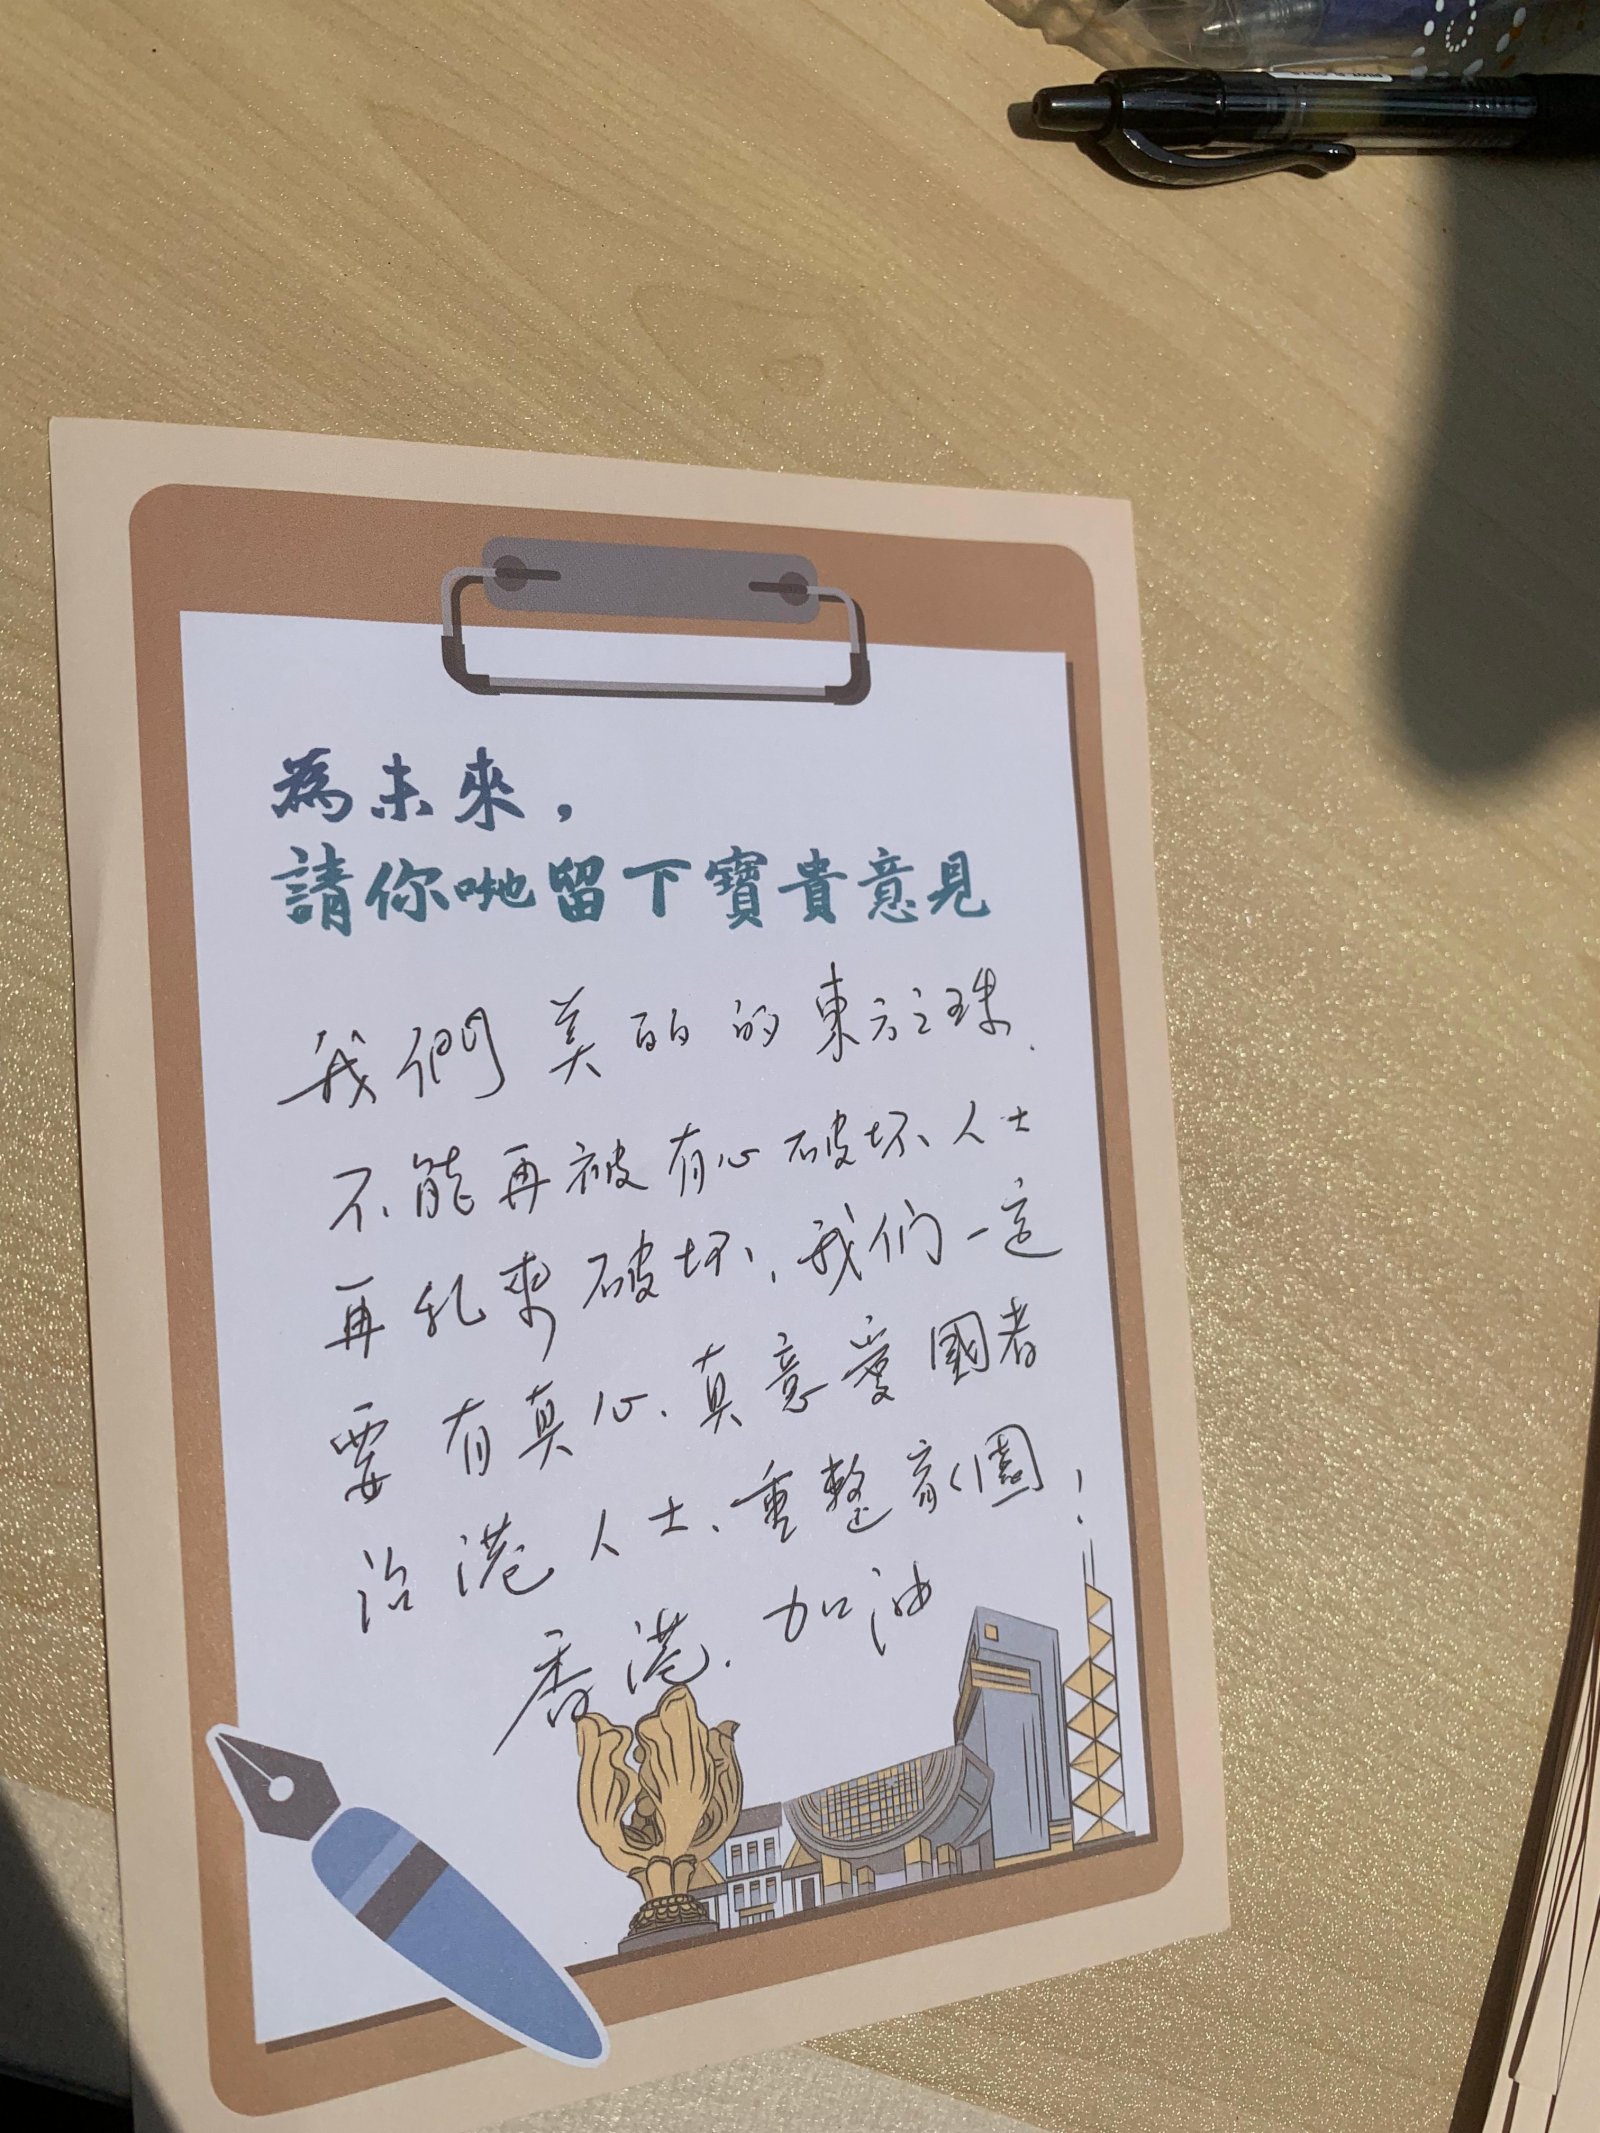 為未來，
請你哋留下寶貴意見
我們美丽的東方之珠、
不能再被有心破坏人士
再乱來破坏、我们一定
要有真心、真意愛國者
治港人士、重整家園！
香港、加油